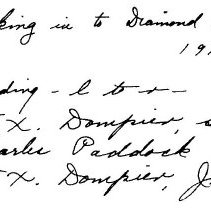 king in to Diamond
19
ding - l to r -
X. Dompier, s
arles Paddock
X. Dompier, J